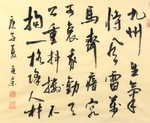 九州生氣
恃風雷萬
馬齊瘖究
可哀我勸天
公重抖擻不
拘一格降人材